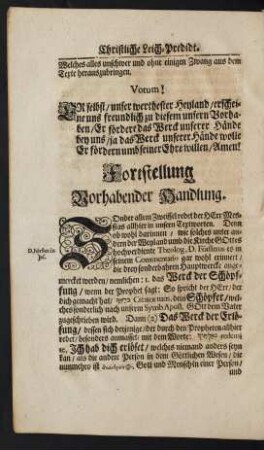 Christliche Leich-Predigt.
Welches alles unschwer und ohne einigen Zwang aus dem
Texte herauszubringen.
Votum!
ER selbst / unser werthester Heyland / erschei-
ne uns freundlich zu diesem unsern Vorha-
ben / Er fördere das Werck unserer Hände
bey uns / ja das Werck unserer Hände wolle
Er fördern umb seiner Ehre willen / Amen!
Fortstellung
Vorhabender Handlung.
Sonder allem Zweiffel redet der HErr Mes-
sias allhier in unsern Textworten. Denn
ob wohl darinnen / wie solches unter an-
dern der Weyland umb die Kirche GOttes
hochverdiente Theolog. D.
seinem Commentario gar wohl erinnert /
die drey sonderbahren Hauptwercke ange-
mercket werden / nemlichen: 1. das Werck der Schöpf-
fung / wenn der Prophet sagt: So spricht der HErr / der
dich gemacht hat / dein Schöpfer / wel-
ches sonderlich nach unserm Symb. Apost. GOtt dem Vater
zugeschrieben wird. Dann (2) Das Werck der Erlö-
sung / dessen sich derjenige / der durch den Propheten allhier
redet / besonders anmasset / mit dem Worte:
Ich hab dich erlöset / welches niemand anders seyn
kan / als die andere Person in dem Göttlichen Wesen / die
nunmehro ist GOtt und Mensch in einer Person /
und